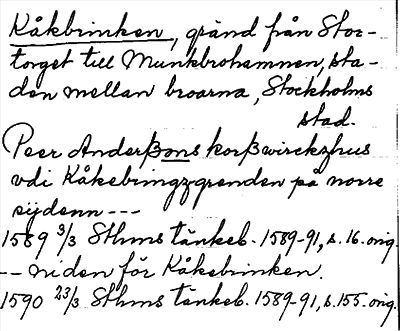 Kåkbrinken, gränd från Stor-
torget till Munkbrohamnen, sta-
den mellan broarna, Stockholms
stad.
Peer Anderßons korßwirckzhus
vdi Kåkebringz grenden på norre
sijdenn ---
1589 3/3 Sthms tänkeb. 1589-91, s. 16. orig.
-- niden för Kåkebrinken.
1590 23/3 Sthms tänkeb. 1589-91, s. 155. orig.